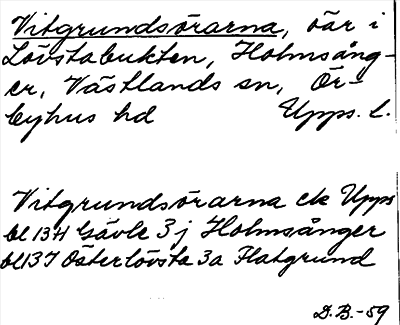 Vitgrundsörarna, öar i
Lövstabukten, Holmsång-
er, Västlands sn, Ör-
byhus hd Upps. l.
Vitgrundsörarna ek Upps
bl 13H Gävle 3j Holmsånger
bl 13I Österlövsta 3a Flatgrund
D.B.-59